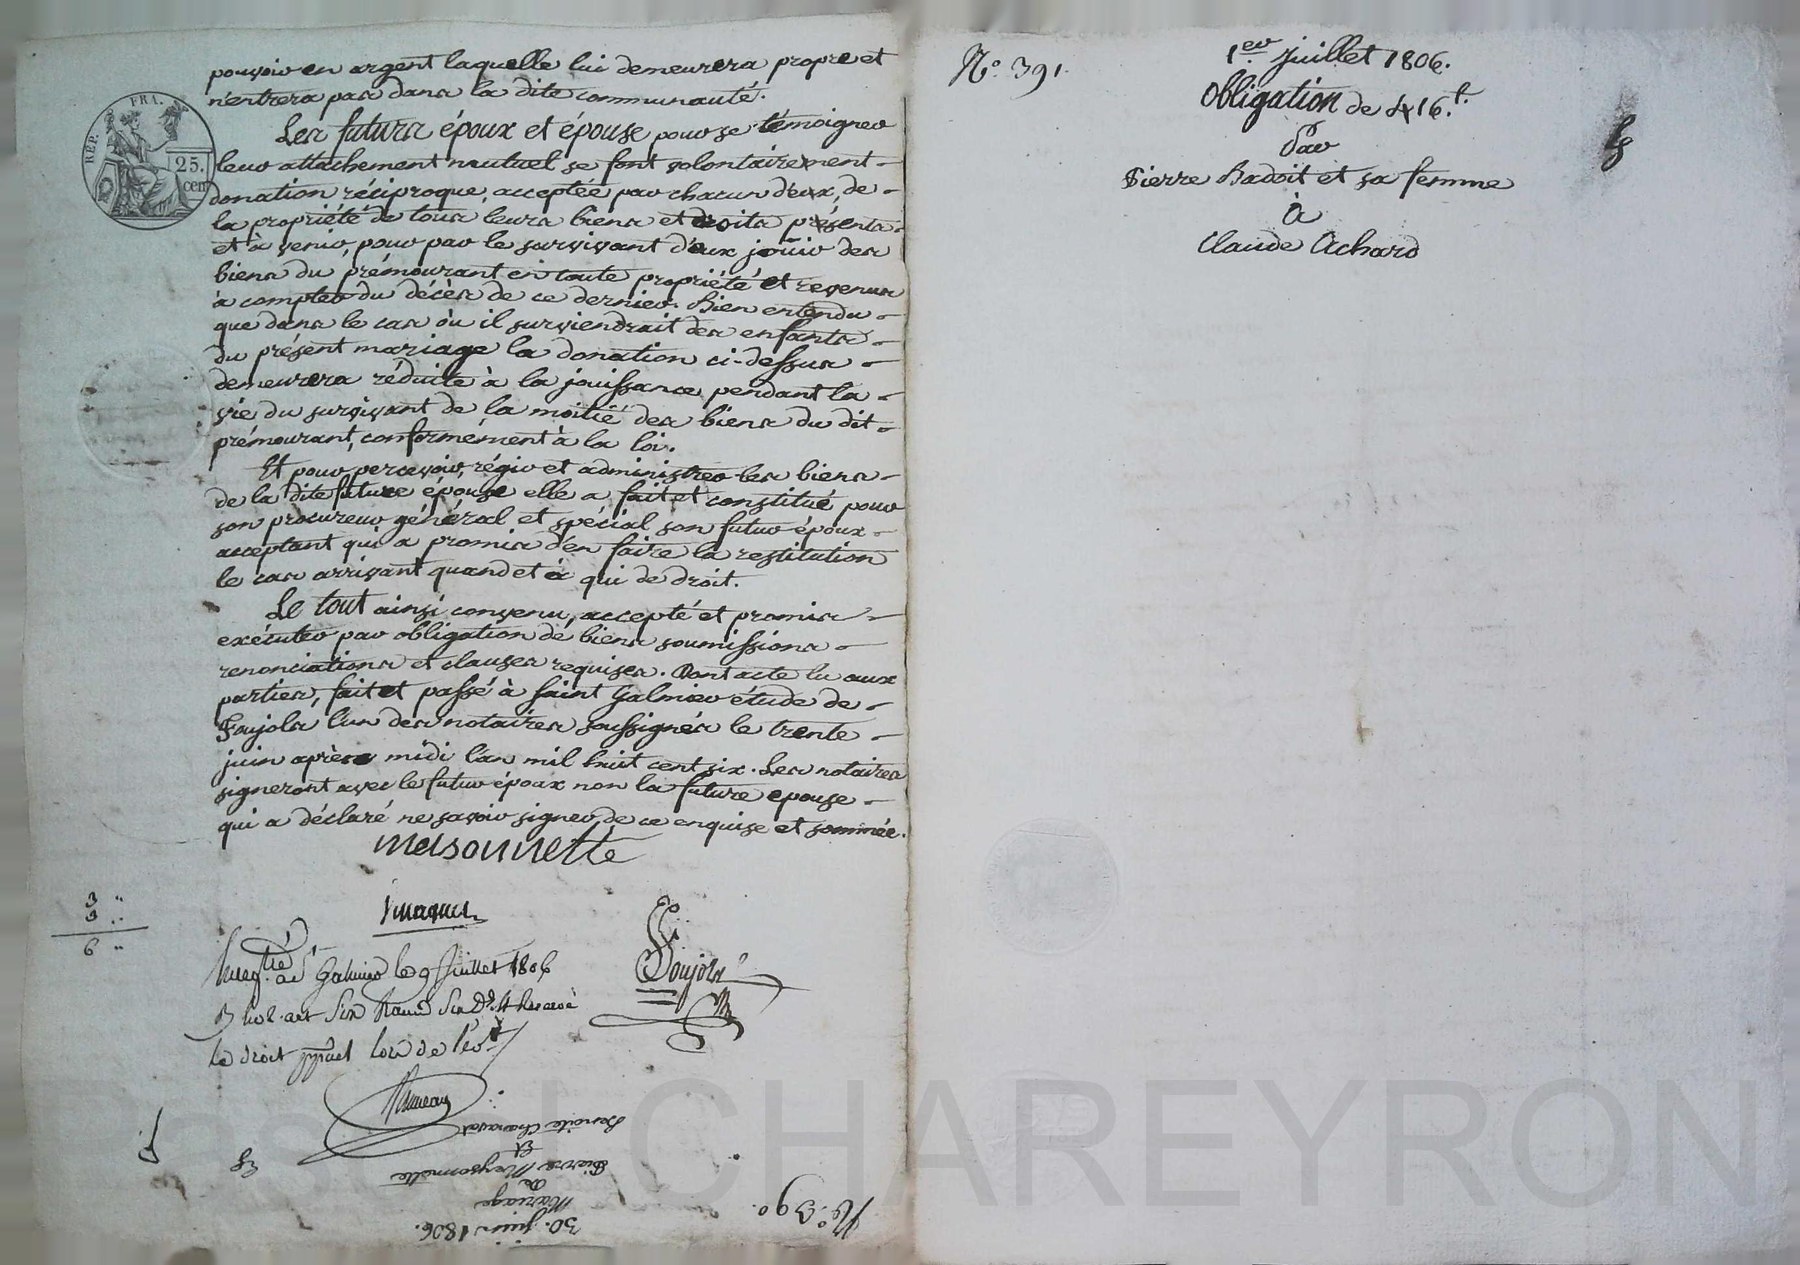 pouvoir en argent laquelle lui demeurera propre et
n'entrera pas dans la dite communauté.
Les futurs époux et épouse pour se témoigner
leur attachement mutuel se font volontairement
donation réciproque, acceptée par chacun d'eux, de
la propriété de tous leurs biens et droits présents
et à venir, pour par le survivant d'eux joüir des
biens du prémourant en toute propriété et revenus
à compter du décès de ce dernier. Bien entendu
que dans le cas où il surviendrait des enfants
du présent mariage la donation ci-dessus
demeurera réduite à la jouissance pendant la
vie du survivant de la moitié des biens du dit
prémourant, conformément à la loi.
Et pour percevoir, régir et administrer les biens
de la dite future épouse elle a fait et constitué pour
son procureur général et spécial son futur époux
acceptant qui a promis d'en faire la restitution
le cas arrivant quand et à qui de droit.
Le tout ainsi convenu, accepté et promis
exécuter par obligation de biens soumissions
renonciations et clauses requises. Dont acte lu aux
parties, fait et passé à Saint Galmier étude de
Poujols l'un des notaires soussignés le trente
juin après midi l'an mil huit cent six. Les notaires
signeront avec le futur époux non la future epouse
qui a déclaré ne savoir signer, de ce enquise et sommée.
meisonnette
Poujols
3 "
3 "
6 "
St Galmier le 9 Juillet 1806
le droit lors de
Benoite Charavat
Et
Pierre Meysonnette
De
Mariage
30. juin 1806.
No. 390.
REP. FRA.
25.
cen
No. 391.
1er Juillet 1806.
Obligation de 416f.
Par
Pierre Badoit et sa femme
à
Claude Achard
CHAREYRON